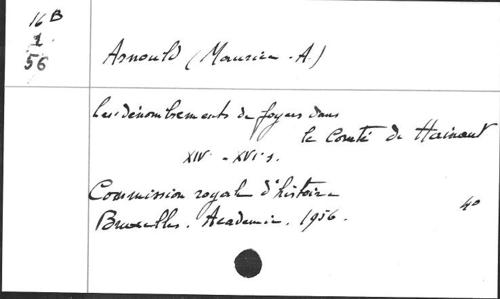 16 B
1
56
Arnould (Maurice-A.)
Les dénombrements de foyers dans
le Comté de Hainaut
XIVe - XVIe s.
Commission royale d'histoire
Bruxelles. Académie. 1956.
4°